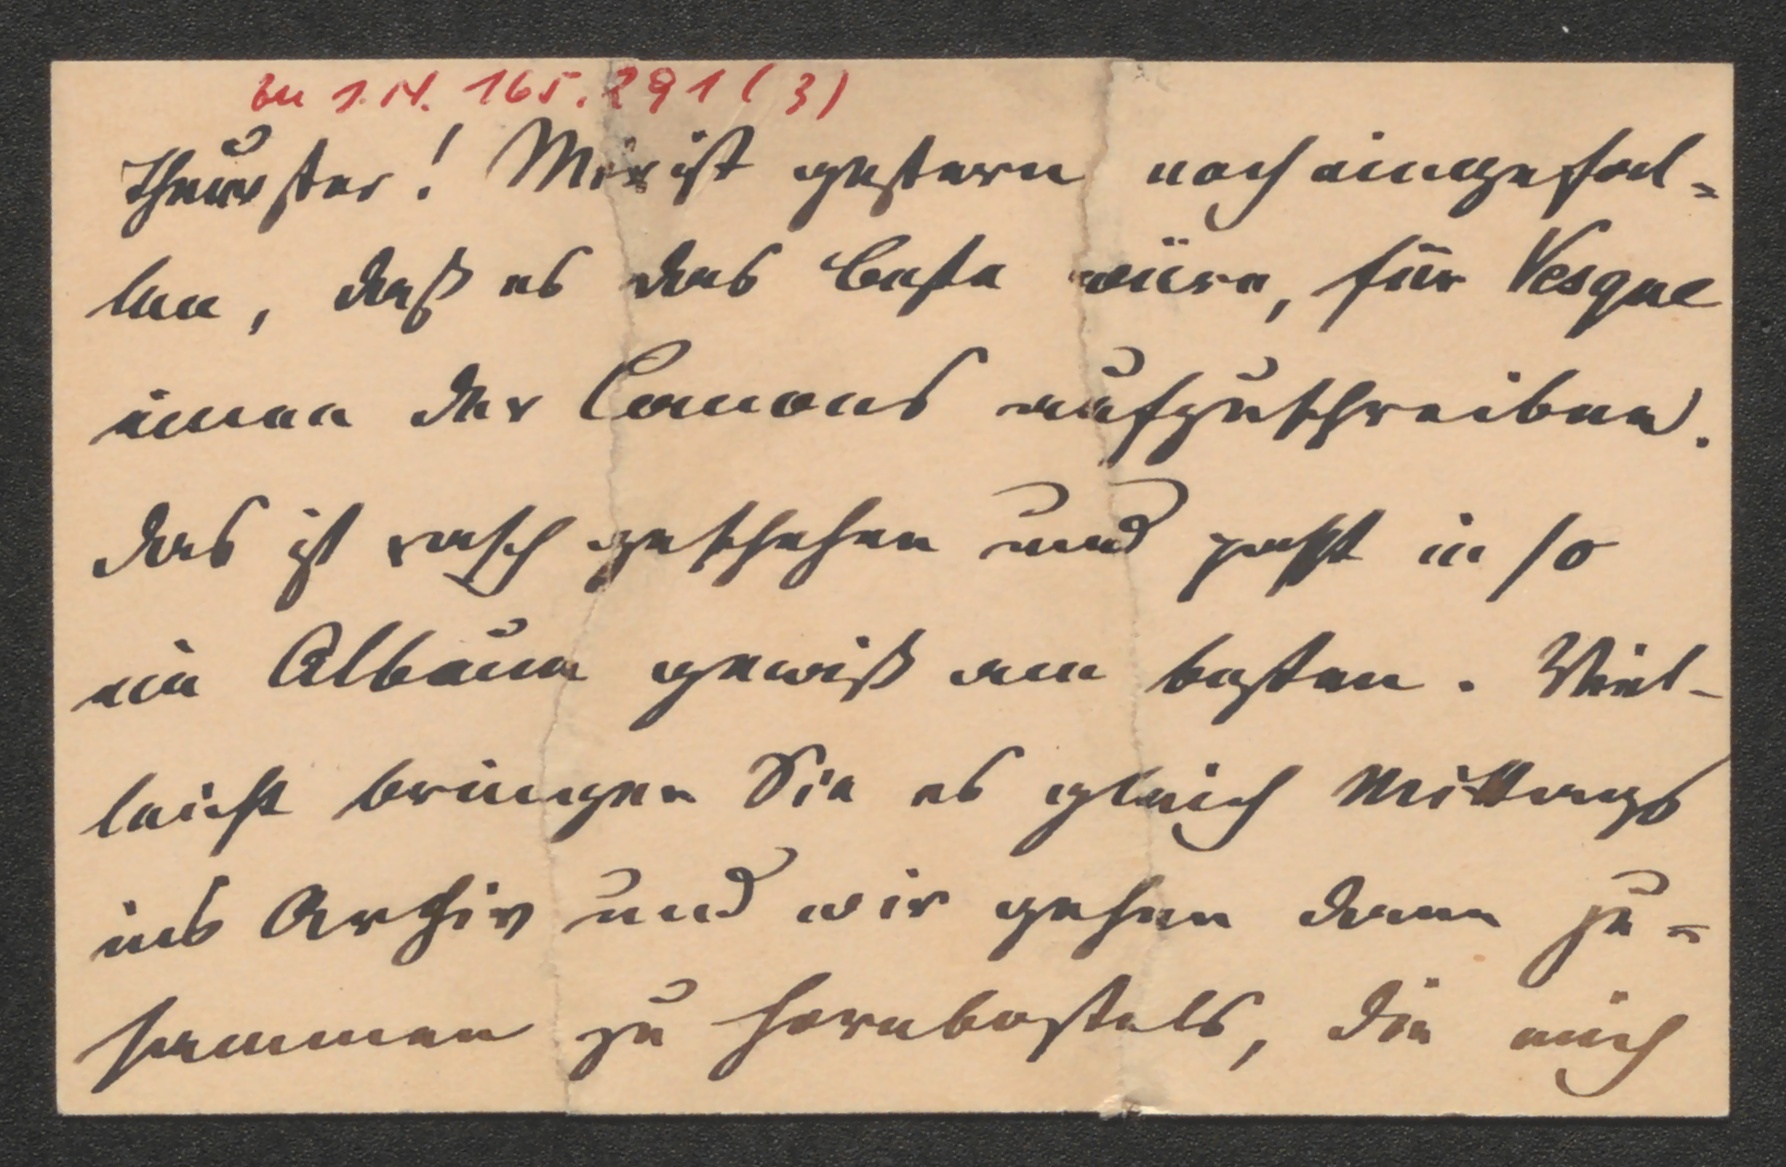 Zu I.N. 165.291 (3)
Theuerster! Mir ist gestern noch eingefal-
len, daß es das beste wäre, für Vesque
einen der Canons aufzuschreiben.
das ist rasch geschehen und paßt in so
ein Album gewiß am besten. Viel-
leicht bringen Sie es gleich Mittags
ins Archiv und wir gehen dann zu-
sammen zu Hornbostels, die mich